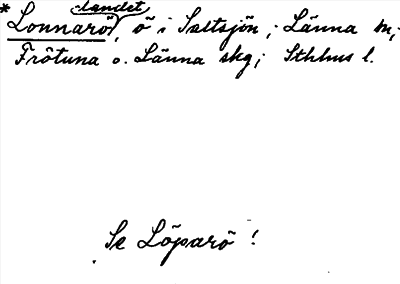 landet
* Lonnarö, ö i Saltsjön; Länna sn;
Frötuna o. Länna skg; Sthlms l.
Se Löparö!